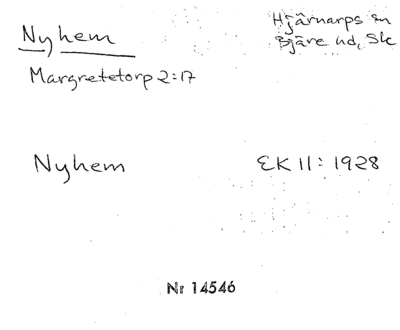 Nyhem
Hjärnarps sn
Bjäre hd, Sk
Margretetorp 2:17
Nyhem
EK 11: 1928
Nr 14546